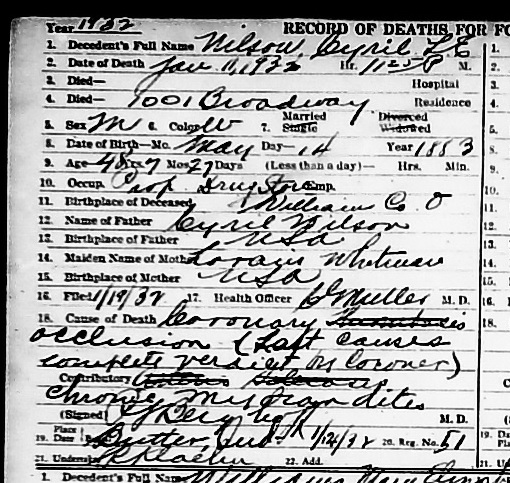 Year 1932 RECORD OF DEATHS FOR FO
1. Decedent's Full Name Wilson, Cyril L E
2. Date of Death Jan 11, 1932 Hr. 11:25 P M.
3. Died— Hospital
4. Died— 1001 Broadway Residence
5. Sex M 6. Color W 7. Married Single Divorced Widowed
8. Date of Birth—Mo. May Day— 14 Year 1883
9. Age— 48 Yrs 7 Mos 27 Days (Less than a day)— Hrs. Min.
10. Occup. Prop. Drug Store Emp.
11. Birthplace of Deceased William Co O
12. Name of Father Cyril Wilson
13. Birthplace of Father USA
14. Maiden Name of Mother Whitman
15. Birthplace of Mother USA
16. Filed 1/19/32 17. Health Officer Muller M. D.
18. Cause of Death Coronary Thrombosis
occlusion (Last causes
complete verdict by Coroner)
Contributory
Chronic Myocarditis
(Signed) M. D.
19. Place Date Butler, Ind 20. Reg. No. 51
21. Undertaker 22. Add.
1. Decedent's Full Name Williams
1.
2.
3.
4.
5.
8.
9.
10.
11.
12.
13.
14.
15.
16.
18.